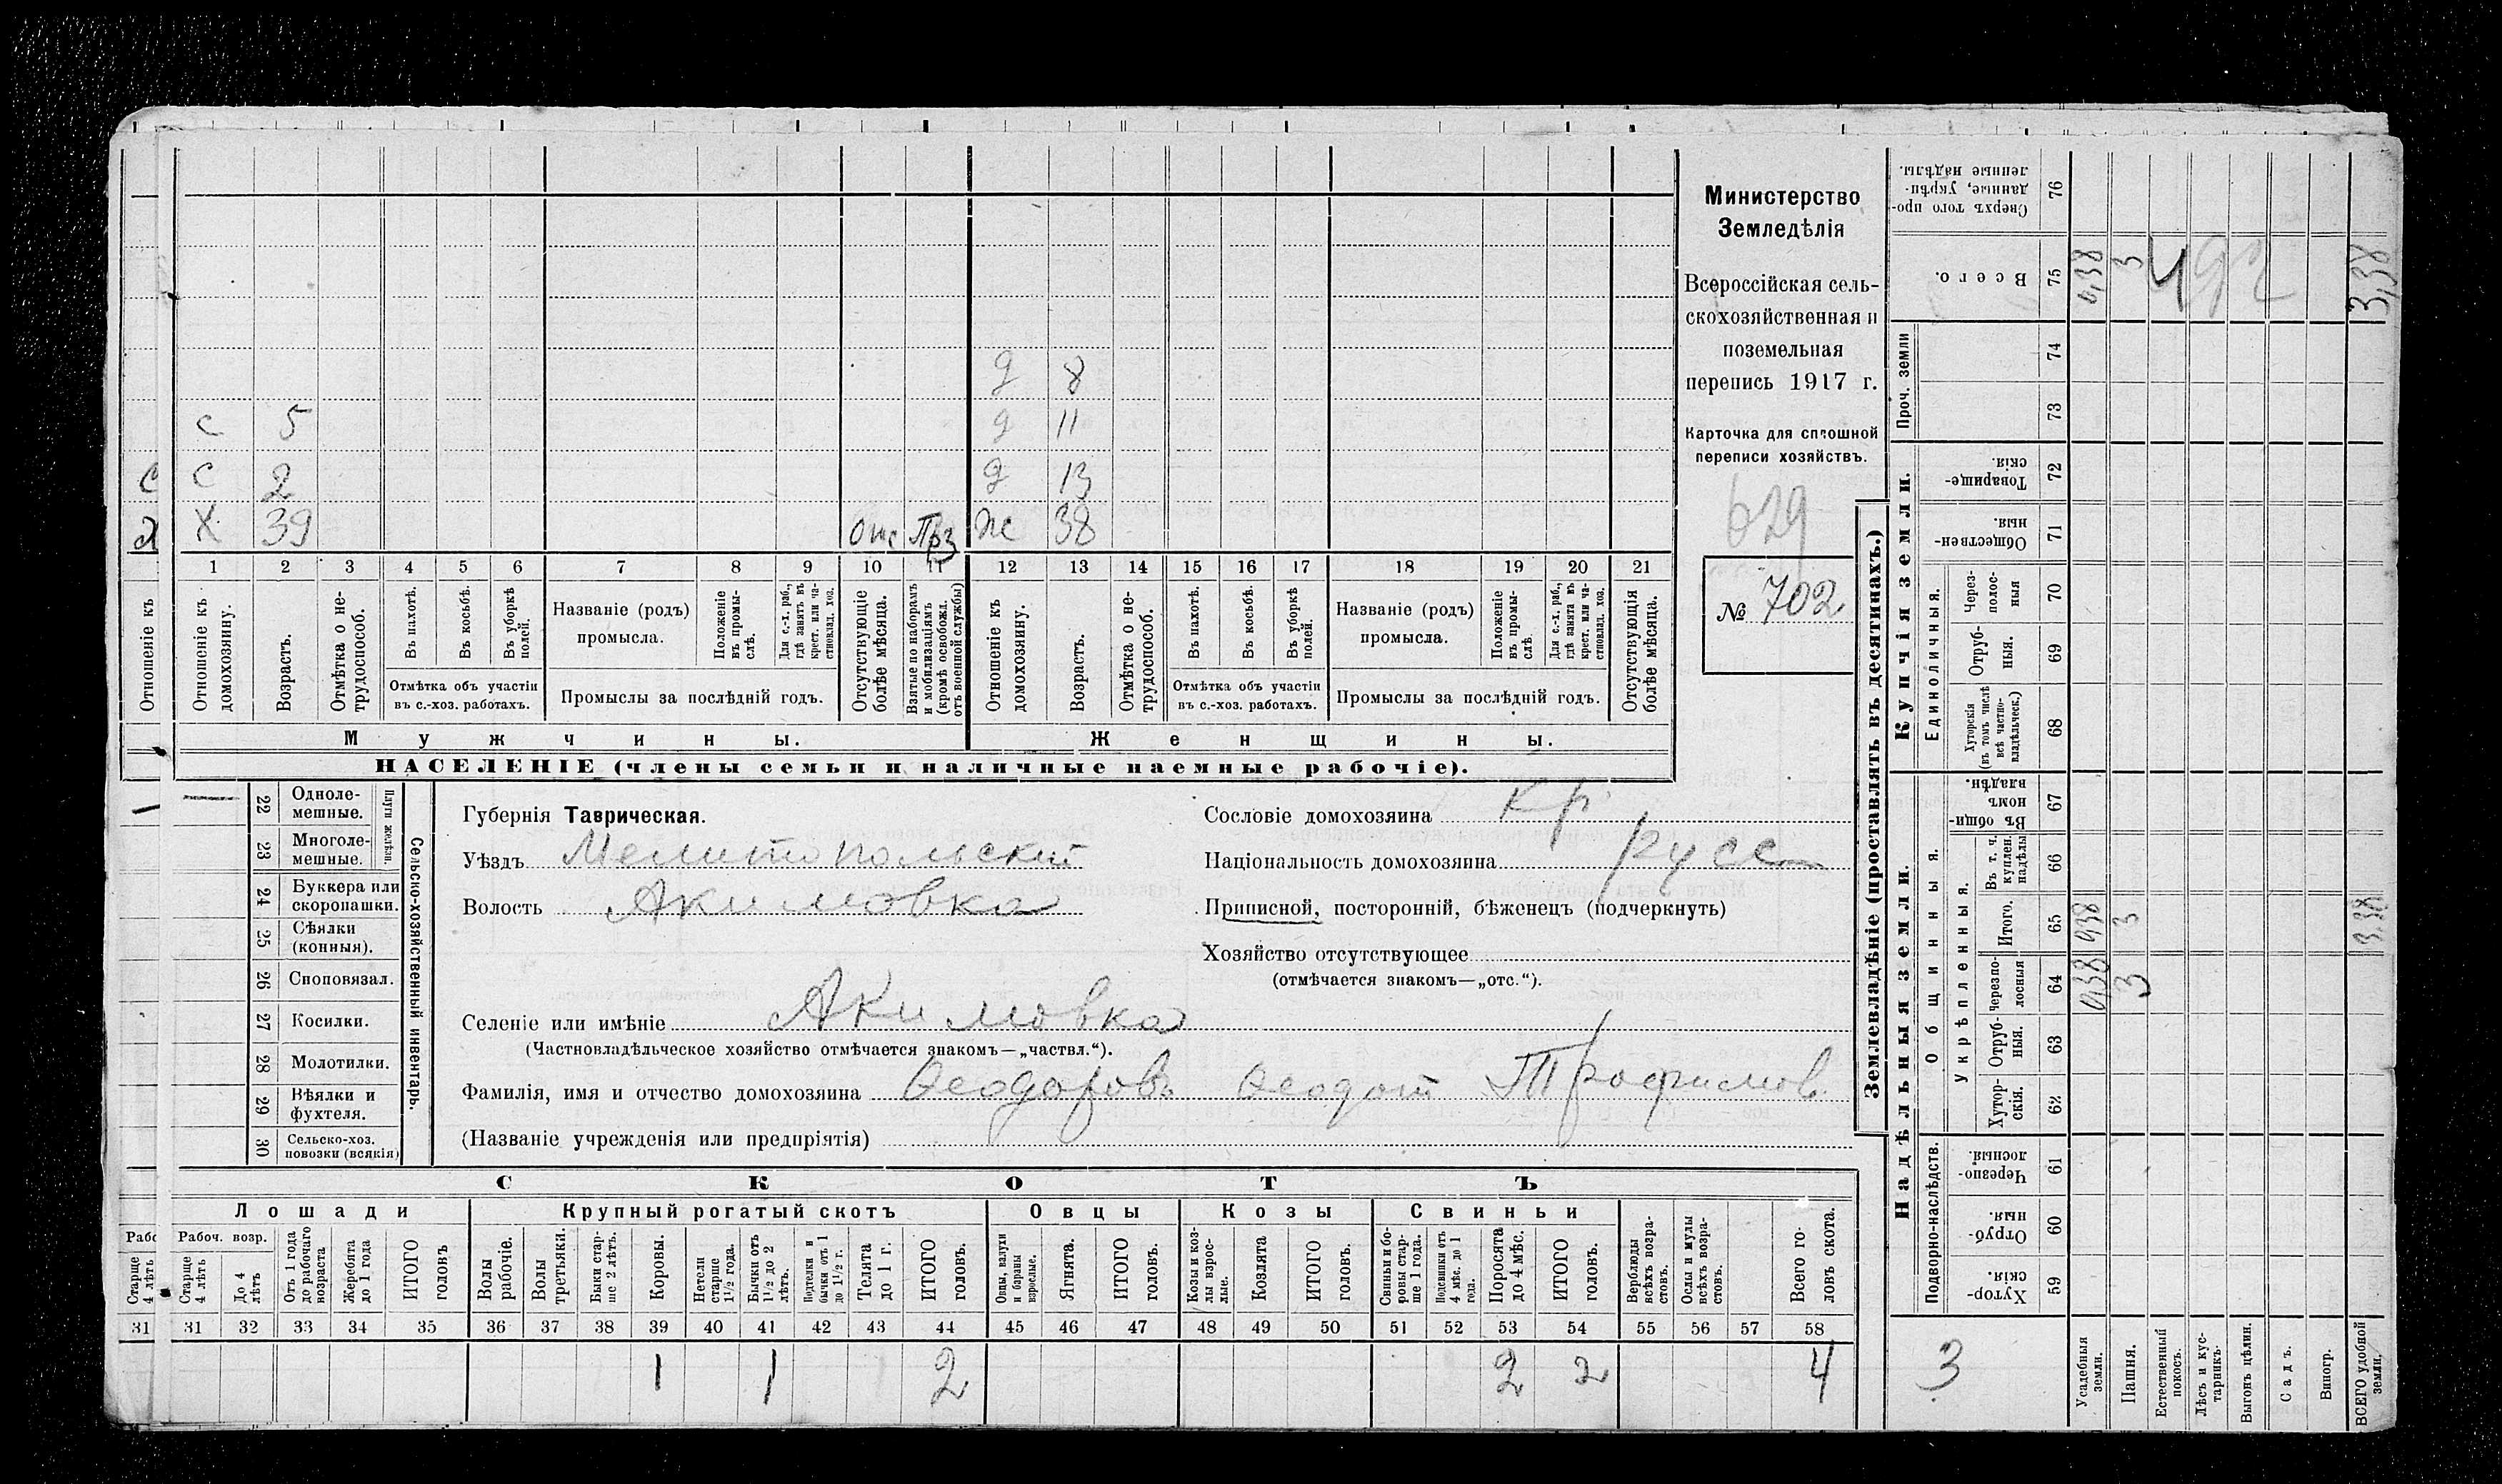 д 8
с 5 д 11
с с 2 д 13
д х 39 отс Прз ж 38
1 2 3 4 5 6 7 8 9 10 11 12 13 14 15 16 17 18 19 20 21
Отношеніе къ
Отношеніе къ домохозяину.
Возрастъ.
Отмѣтка о не-трудоспособ.
Въ пахотѣ.
Въ косьбѣ.
Въ уборкѣ полей.
Отмѣтка объ участіи въ с.-хоз. работахъ.
Названіе (родъ) промысла.
Положеніе въ промы-слѣ.
Для с.-х. раб., гдѣ занятъ въ крест. или ча-стновлад. хоз.
Промыслы за послѣдній годъ.
Отсутствующіе болѣе мѣсяца.
Взятые по наборамъ и мобилизаціямъ (кромѣ освобожд. отъ военной службы)
Отношеніе къ домохозяину.
Возрастъ.
Отмѣтка о не-трудоспособ.
Въ пахотѣ.
Въ косьбѣ.
Въ уборкѣ полей.
Отмѣтка объ участіи въ с.-хоз. работахъ.
Названіе (родъ) промысла.
Положеніе въ промы-слѣ.
Для с.-х. раб., гдѣ занята въ крест. или ча-стновлад. хоз.
Промыслы за послѣдній годъ.
Отсутствующія болѣе мѣсяца.
Мужчины.
Женщины.
НАСЕЛЕНІЕ (члены семьи и наличные наемные рабочіе).
Министерство
Земледѣлія
Всероссійская сель-
скохозяйственная и
поземельная
перепись 1917 г.
Карточка для сплошной
переписи хозяйствъ.
629
№ 702
22 Одноле-мешные.
23 Многоле-мешные.
Плуги желѣзн.
24 Буккера или скоропашки.
25 Сѣялки (конныя).
26 Сноповязал.
27 Косилки.
28 Молотилки.
29 Вѣялки и фухтеля.
30 Сельско-хоз. повозки (всякія)
Сельско-хозяйственный инвентарь.
Губернія Таврическая.
Уѣздъ Мелитопольский
Волость Акимовка
Сословіе домохозяина Кр
Національность домохозяина русс
Приписной, посторонній, бѣженецъ (подчеркнуть)
Хозяйство отсутствующее
(отмѣчается знакомъ—„отс.“).
Селеніе или имѣніе Акимовка
(Частновладѣльческое хозяйство отмѣчается знакомъ—„частвл.“).
Фамилія, имя и отчество домохозяина Ѳеодоровъ Ѳеодот Трофимов.
(Названіе учрежденія или предпріятія)
СКОТЪ
Лошади
Крупный рогатый скотъ
Овцы
Козы
Свиньи
Рабо
Рабоч. возр.
Старше 4 лѣтъ
Старше 4 лѣтъ
До 4 лѣтъ
Отъ 1 года до рабочаго возраста
Жеребята до 1 года
ИТОГО головъ
Волы рабочіе.
Волы третьяки.
Быки стар-ше 2 лѣтъ.
Коровы.
Нетели старше 1½ года.
Бычки отъ 1½ до 2 лѣтъ.
Подтелки и бычки отъ 1 до 1½ г.
Телята до 1 г.
ИТОГО головъ.
Овцы, валухи и бараны взрослые.
Ягнята.
ИТОГО головъ.
Козы и коз-лы взрос-лые.
Козлята
ИТОГО головъ.
Свиньи и бо-ровы стар-ше 1 года.
Подсвинки отъ 4 мѣс. до 1 года.
Поросята до 4 мѣс.
ИТОГО головъ.
Верблюды всѣхъ возра-стовъ.
Ослы и мулы всѣхъ возра-стовъ.
Всего го-ловъ скота.
31 31 32 33 34 35 36 37 38 39 40 41 42 43 44 45 46 47 48 49 50 51 52 53 54 55 56 57 58
1 1 2 2 2 4
Землевладѣніе (проставлять въ десятинахъ.)
Купчія земли.
Надѣльныя земли.
Сверхъ того про-данные, укрѣп-ленные надѣлы. 76
Всего. 75 0,38 3 3,38
492
Проч. земли 74
73
Товарище-скія. 72
Обществен-ныя. 71
Единоличныя.
Через-полос-ныя 70
Отруб-ныя. 69
Хуторскія (въ томъ числѣ всѣ частно-владѣльческ.) 68
Общинныя.
Въ общи-номъ владѣн. 67
Укрѣпленныя.
Въ т. ч. куплен. надѣлы 66
Итого. 65 0,38 3 3,38
Черезпо-лосныя 64 0,38 3
Отруб-ныя. 63
Хутор-скія. 62
Подворно-наслѣдств.
Черезпо-лосныя. 61
Отруб-ныя. 60
Хутор-скія. 59
3
Усадебныя земли.
Пашня.
Естественный покосъ.
Лѣсъ и кус-тарникъ.
Выгонъ цѣлин.
Садъ.
Виногр.
ВСЕГО удобной земли.